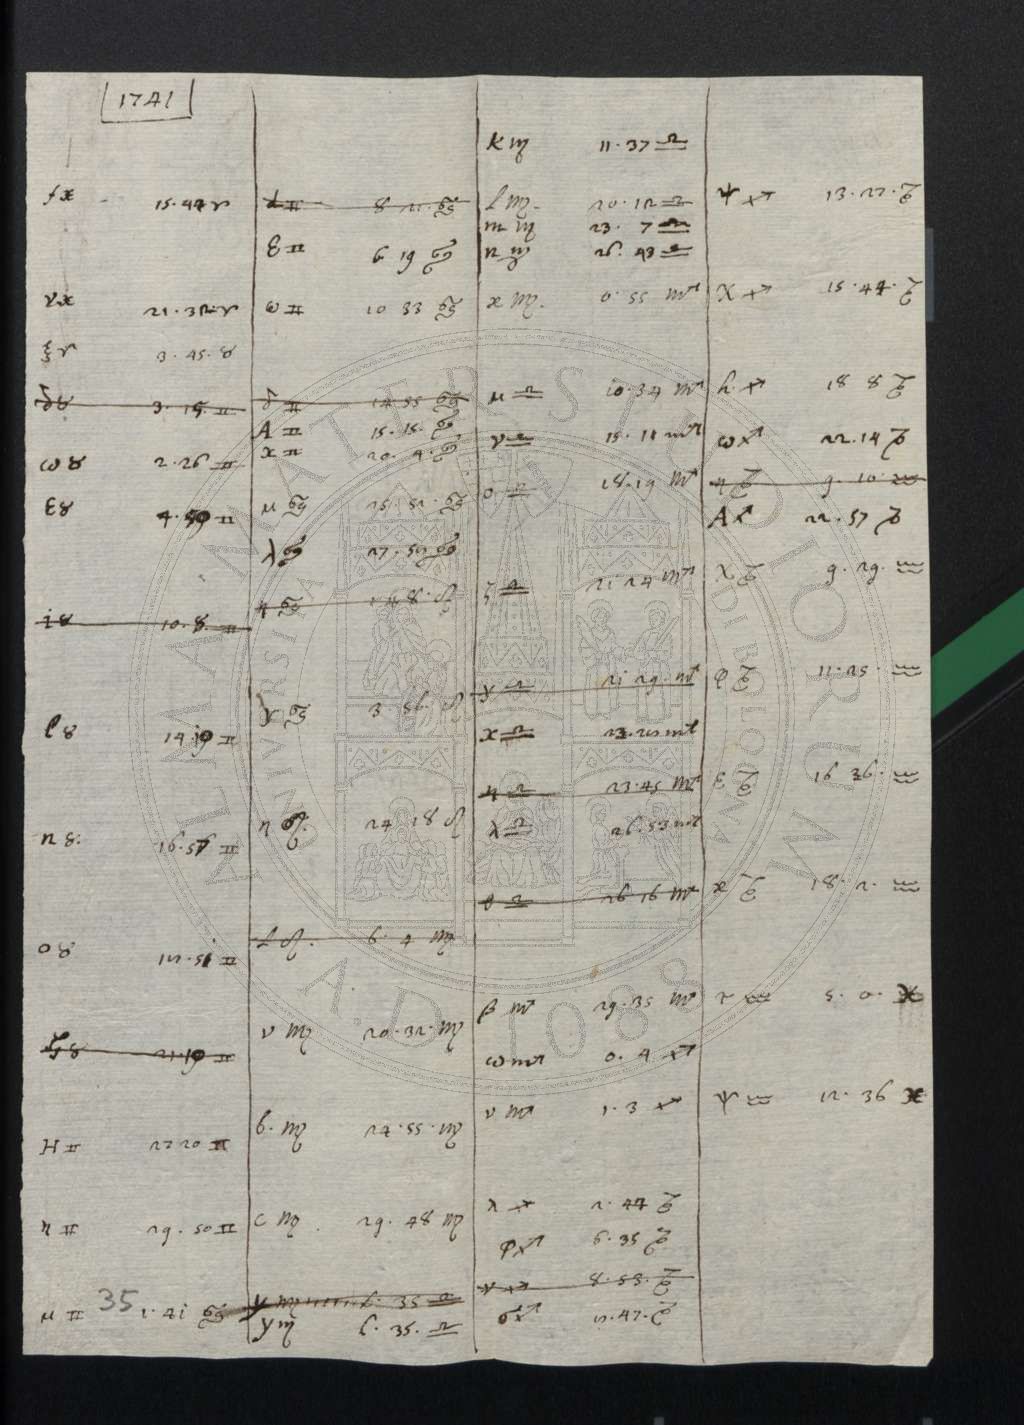 1741
f ♓ 15.44 ♈
ν ♓ 21.32 ♈
ξ ♈ 3.45. ♉
δ ♉ 3.15 ♊
ω ♉ 2.26 ♊
ε ♉ 4.59 ♊
i ♉ 10.8. ♊
l ♉ 14.19 ♊
n ♉. 16.56 ♊
o ♉ ♊
ζ ♉ 21.19 ♊
H ♊ 27 20 ♊
η ♊ 29.50 ♊
μ ♊ 1.41 ♋
35
♊ 8 21. ♋
ε ♊ 6 19 ♋
ω ♊ 10 33 ♋
δ ♊ 14 55 ♋
A ♊ 15.15. ♋
x ♊ 20.4. ♋
μ ♋ 25.51. ♋
λ ♋ 27.59 ♋
η ♋ 8. ♌
γ ♋ 3 56. ♌
η ♌. 24 18 ♌
♌. 6. 4 ♍
ν ♍ 20.32. ♍
b. ♍ 24.55. ♍
c ♍. 29.48 ♍
y ♍ 6. 35 ♎
y ♍ 6.35. ♎
k ♍ 11.37 ♎
l ♍. 20.12 ♎
m ♍ 23. 7 ♎
n ♍ 26.43 ♎
ϰ ♍. 0.55 ♏
μ ♎ 10.34 ♏
ν ♎ 15.11 ♏
o ♎ 18.19 ♏
ζ ♎ 21 24 ♏
γ ♎ 21 29. ♏
x ♎ 23.21 ♏
η ♎ 23.45 ♏
λ ♎ 26.53 ♏
θ ♎ 26 16 ♏
β ♏ 29.35 ♏
ω ♏ 0.4 ♐
ν ♏ 1.3 ♐
λ ♐ 2.44 ♑
φ ♐ 6.35 ♑
♐ 8.53. ♑
σ ♐ ♑
ψ ♐ 13.27. ♑
χ ♐ 15.44. ♑
h. ♐ 18 8 ♑
ω ♐ 22.14 ♑
η ♑ 9.10 ♒
A ♐ 22.57 ♑
χ ♑ 9.29. ♒
φ ♑ 11.25. ♒
ε ♑ 16 36. ♒
ϰ ♑ 18.2. ♒
τ ♒ 5.0. ♓
ψ ♒ 12.36 ♓
ALMA MATER STVDIORVM
A.D. 1088
VNIVERSITÀ DI BOLOGNA